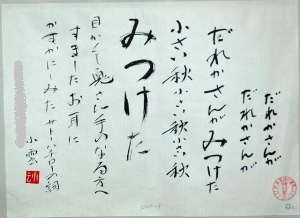 だれかさんが
だれかさんが
だれかさんがみつけた
小さい秋小さい秋小さい秋
みつけた
目かくし鬼さん手のなる方へ
すましたお耳に
かすかにしみた サトウハチローの詞
小雲